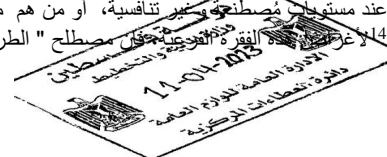 عند مستويات مُصطنعة وغير تنافسية، أو من هم م
14لأغراض هذه الفقرة الفرعية، فإن مصطلح " الطر
فلسطين
والتخطيط
الادارة العامة للوازم العامة
دائرة العطاءات المركزية